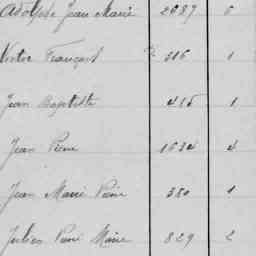 Adolphe Jean Marie 2087 6
Victor François 316 1
Jean Baptiste 415 1
Jean Pierre 1634 4
Jean Marie Pierre 380 1
Julien Pierre Marie 829 2